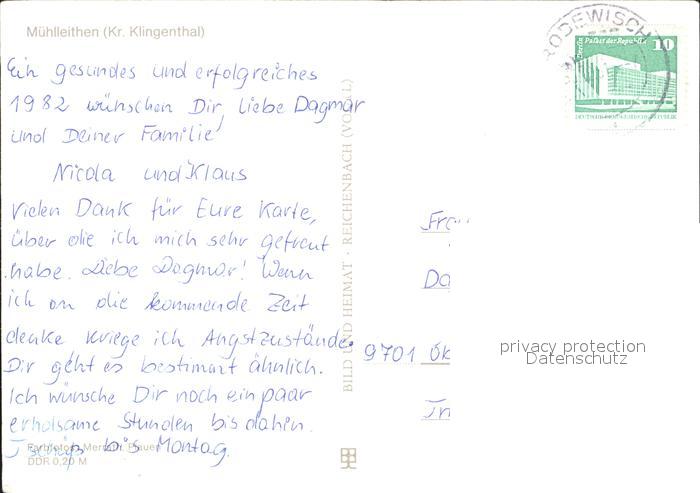 Mühlleithen (Kr. Klingenthal)
Ein gesundes und erfolgreiches
1982 wünschen Dir, liebe Dagmar
und Deiner Familie
Nicola und Klaus
Vielen Dank für Eure Karte,
über die ich mich sehr gefreut
habe. Liebe Dagmar! Wenn
ich an die kommende Zeit
denke kriege ich Angstzustände.
Dir geht es bestimmt ähnlich.
Ich wünsche Dir noch ein paar
erholsame Stunden bis dahin.
bis Montag.
Farbfotos: Plauen
DDR 0,20 M
BILD UND HEIMAT · REICHENBACH (VOGTL)
RODEWISCH
Berlin Palast der Republik 10
DEUTSCHE DEMOKRATISCHE REPUBLIK
Da
9701
privacy protection
Datenschutz